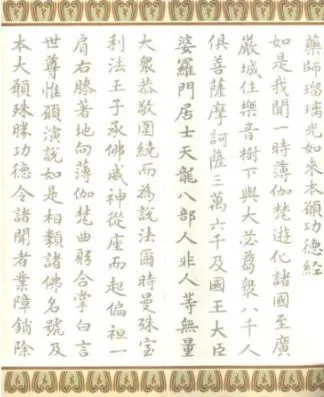 藥師瑠璃光如來本願功德經
如是我聞一時薄伽梵遊化諸國至廣
嚴城住樂音樹下與大苾芻衆八千人
俱菩薩摩訶薩三萬六千及國王大臣
婆羅門居士天龍八部人非人等無量
大衆恭敬圍繞而為說法爾時曼殊室
利法王子承佛威神從座而起偏袒一
肩右膝著地向薄伽梵曲躬合掌白言
世尊惟願演說如是相類諸佛名號及
本大願殊勝功德令諸聞者業障銷除